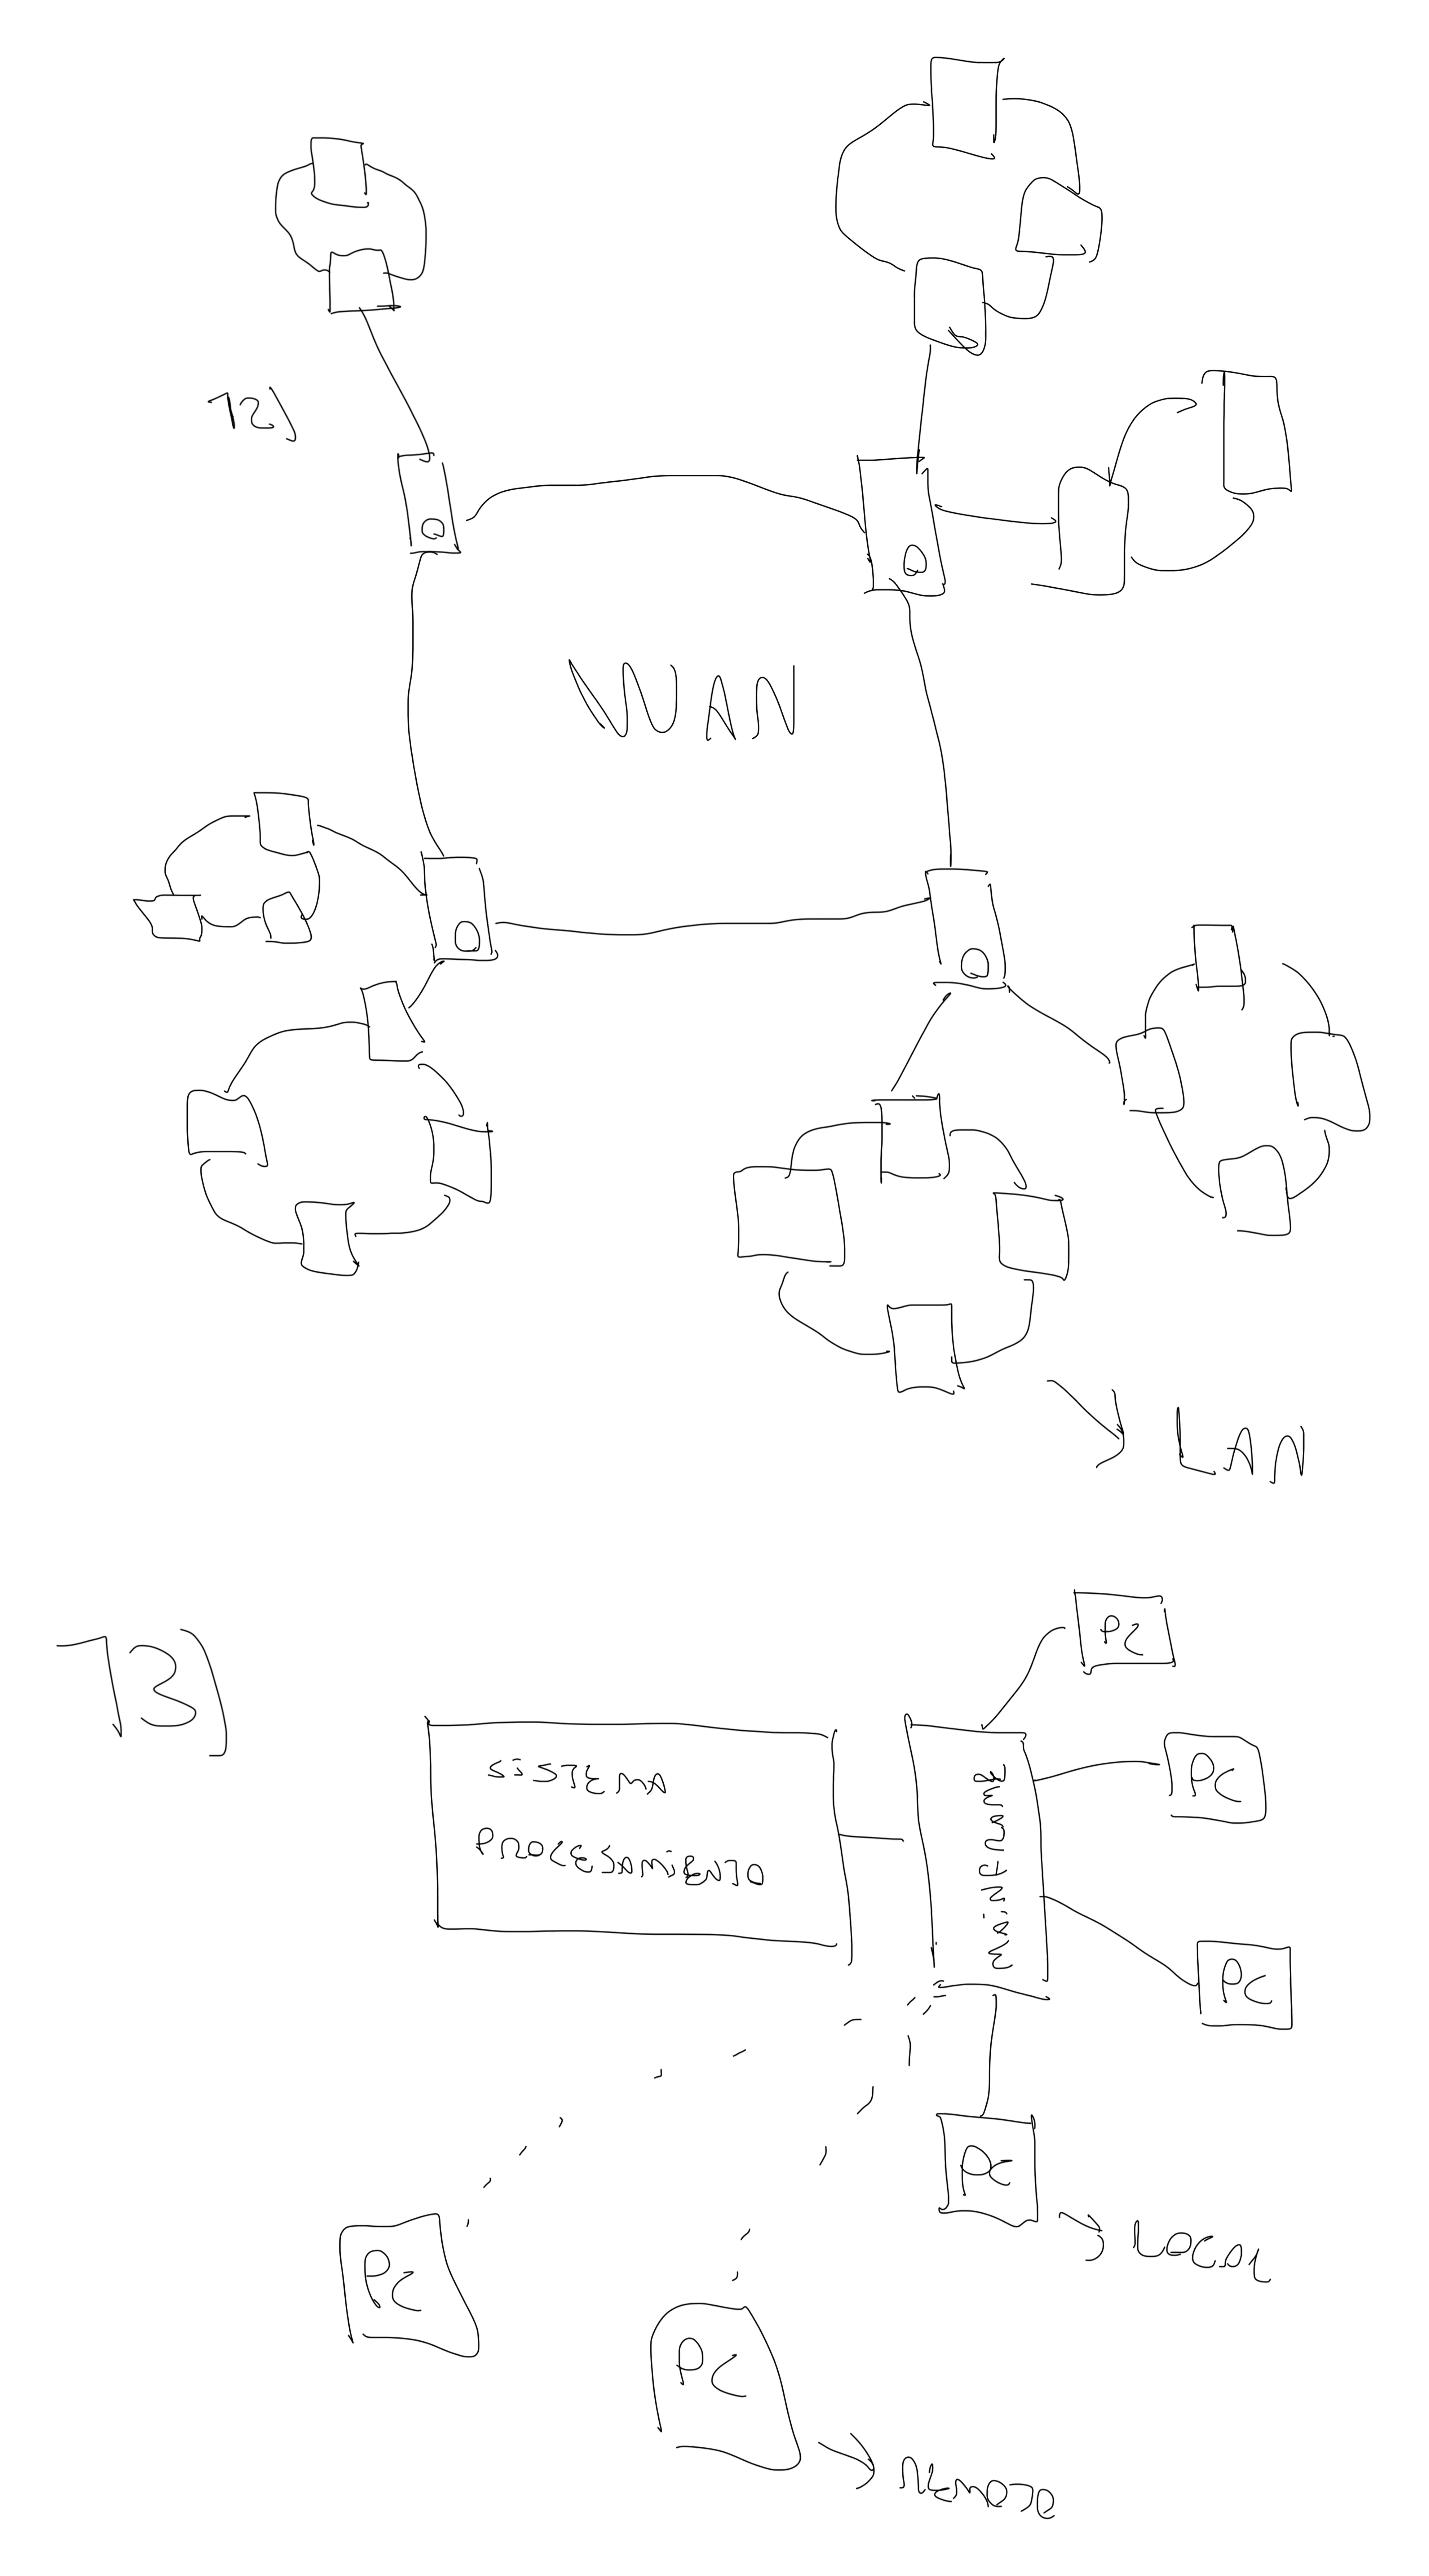 12)
WAN
LAN
13)
PC
SISTEMA
PROCESAMIENTO
MAINFRAME
PC
PC
PC
LOCAL
PC
PC
REMOTO